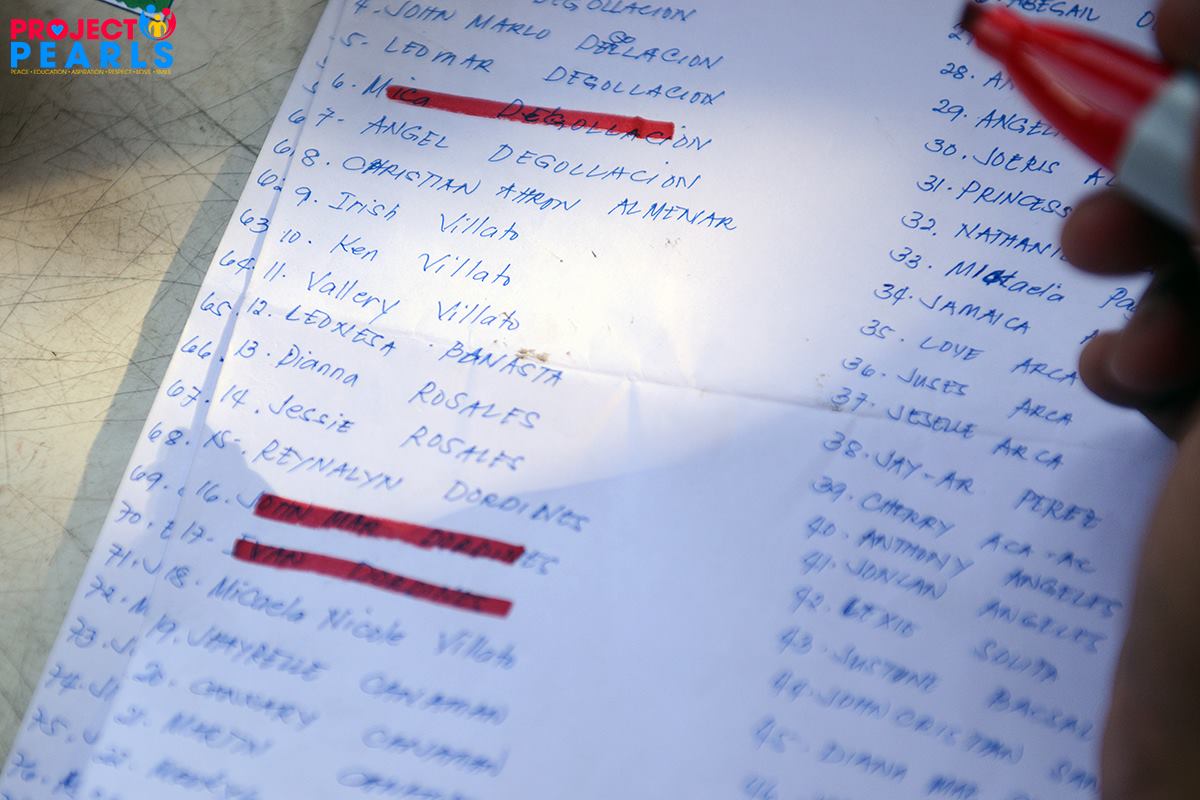 PROJECT
PEARLS
PEACE • EDUCATION • ASPIRATION • RESPECT • LOVE • SMILE
DEGOLLACION
4. JOHN MARLO
5. LEOMAR DEGOLLACION
6. Mica DEGOLLACION
7- ANGEL DEGOLLACION
8. CHRISTIAN AHRON ALMENAR
9. Irish Villato
10. Ken Villato
11. Vallery Villato
12. LEONESA BANASTA
13. Dianna ROSALES
14. Jessie ROSALES
15. REYNALYN DORDINES
16. JOHN MAR DORDINES
17. EVAN DORDINES
18. Micaela Nicole Villato
19. JHAYRELLE CANAMAN
20. CANAMAN
21. MARTIN CANAMAN
22.
63
64.
65.
66.
67.
68.
69.
70.
71. J
72. M
73. J
74. J
75. J
76.
ABEGAIL
28. AN
29. ANGEL
30. JOERIS AL
31. PRINCESS
32. NATHANI
33. Micaela Pag
34. JAMAICA A
35. LOVE ARCA
36. JUSES ARCA
37. JESELLE ARCA
38. JAY-AR PEREZ
39. CHERRY ACA-AC
40. ANTHONY ANGELES
41. JONLAN ANGELES
42. LEXIE SOLITA
43. JUSTONE BACSAL
44. JOHN CRISTIAN SAN
45. DIANA MAE
46.